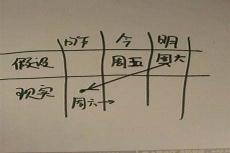 昨 今 明
假设 周五 周六
现实
周六→